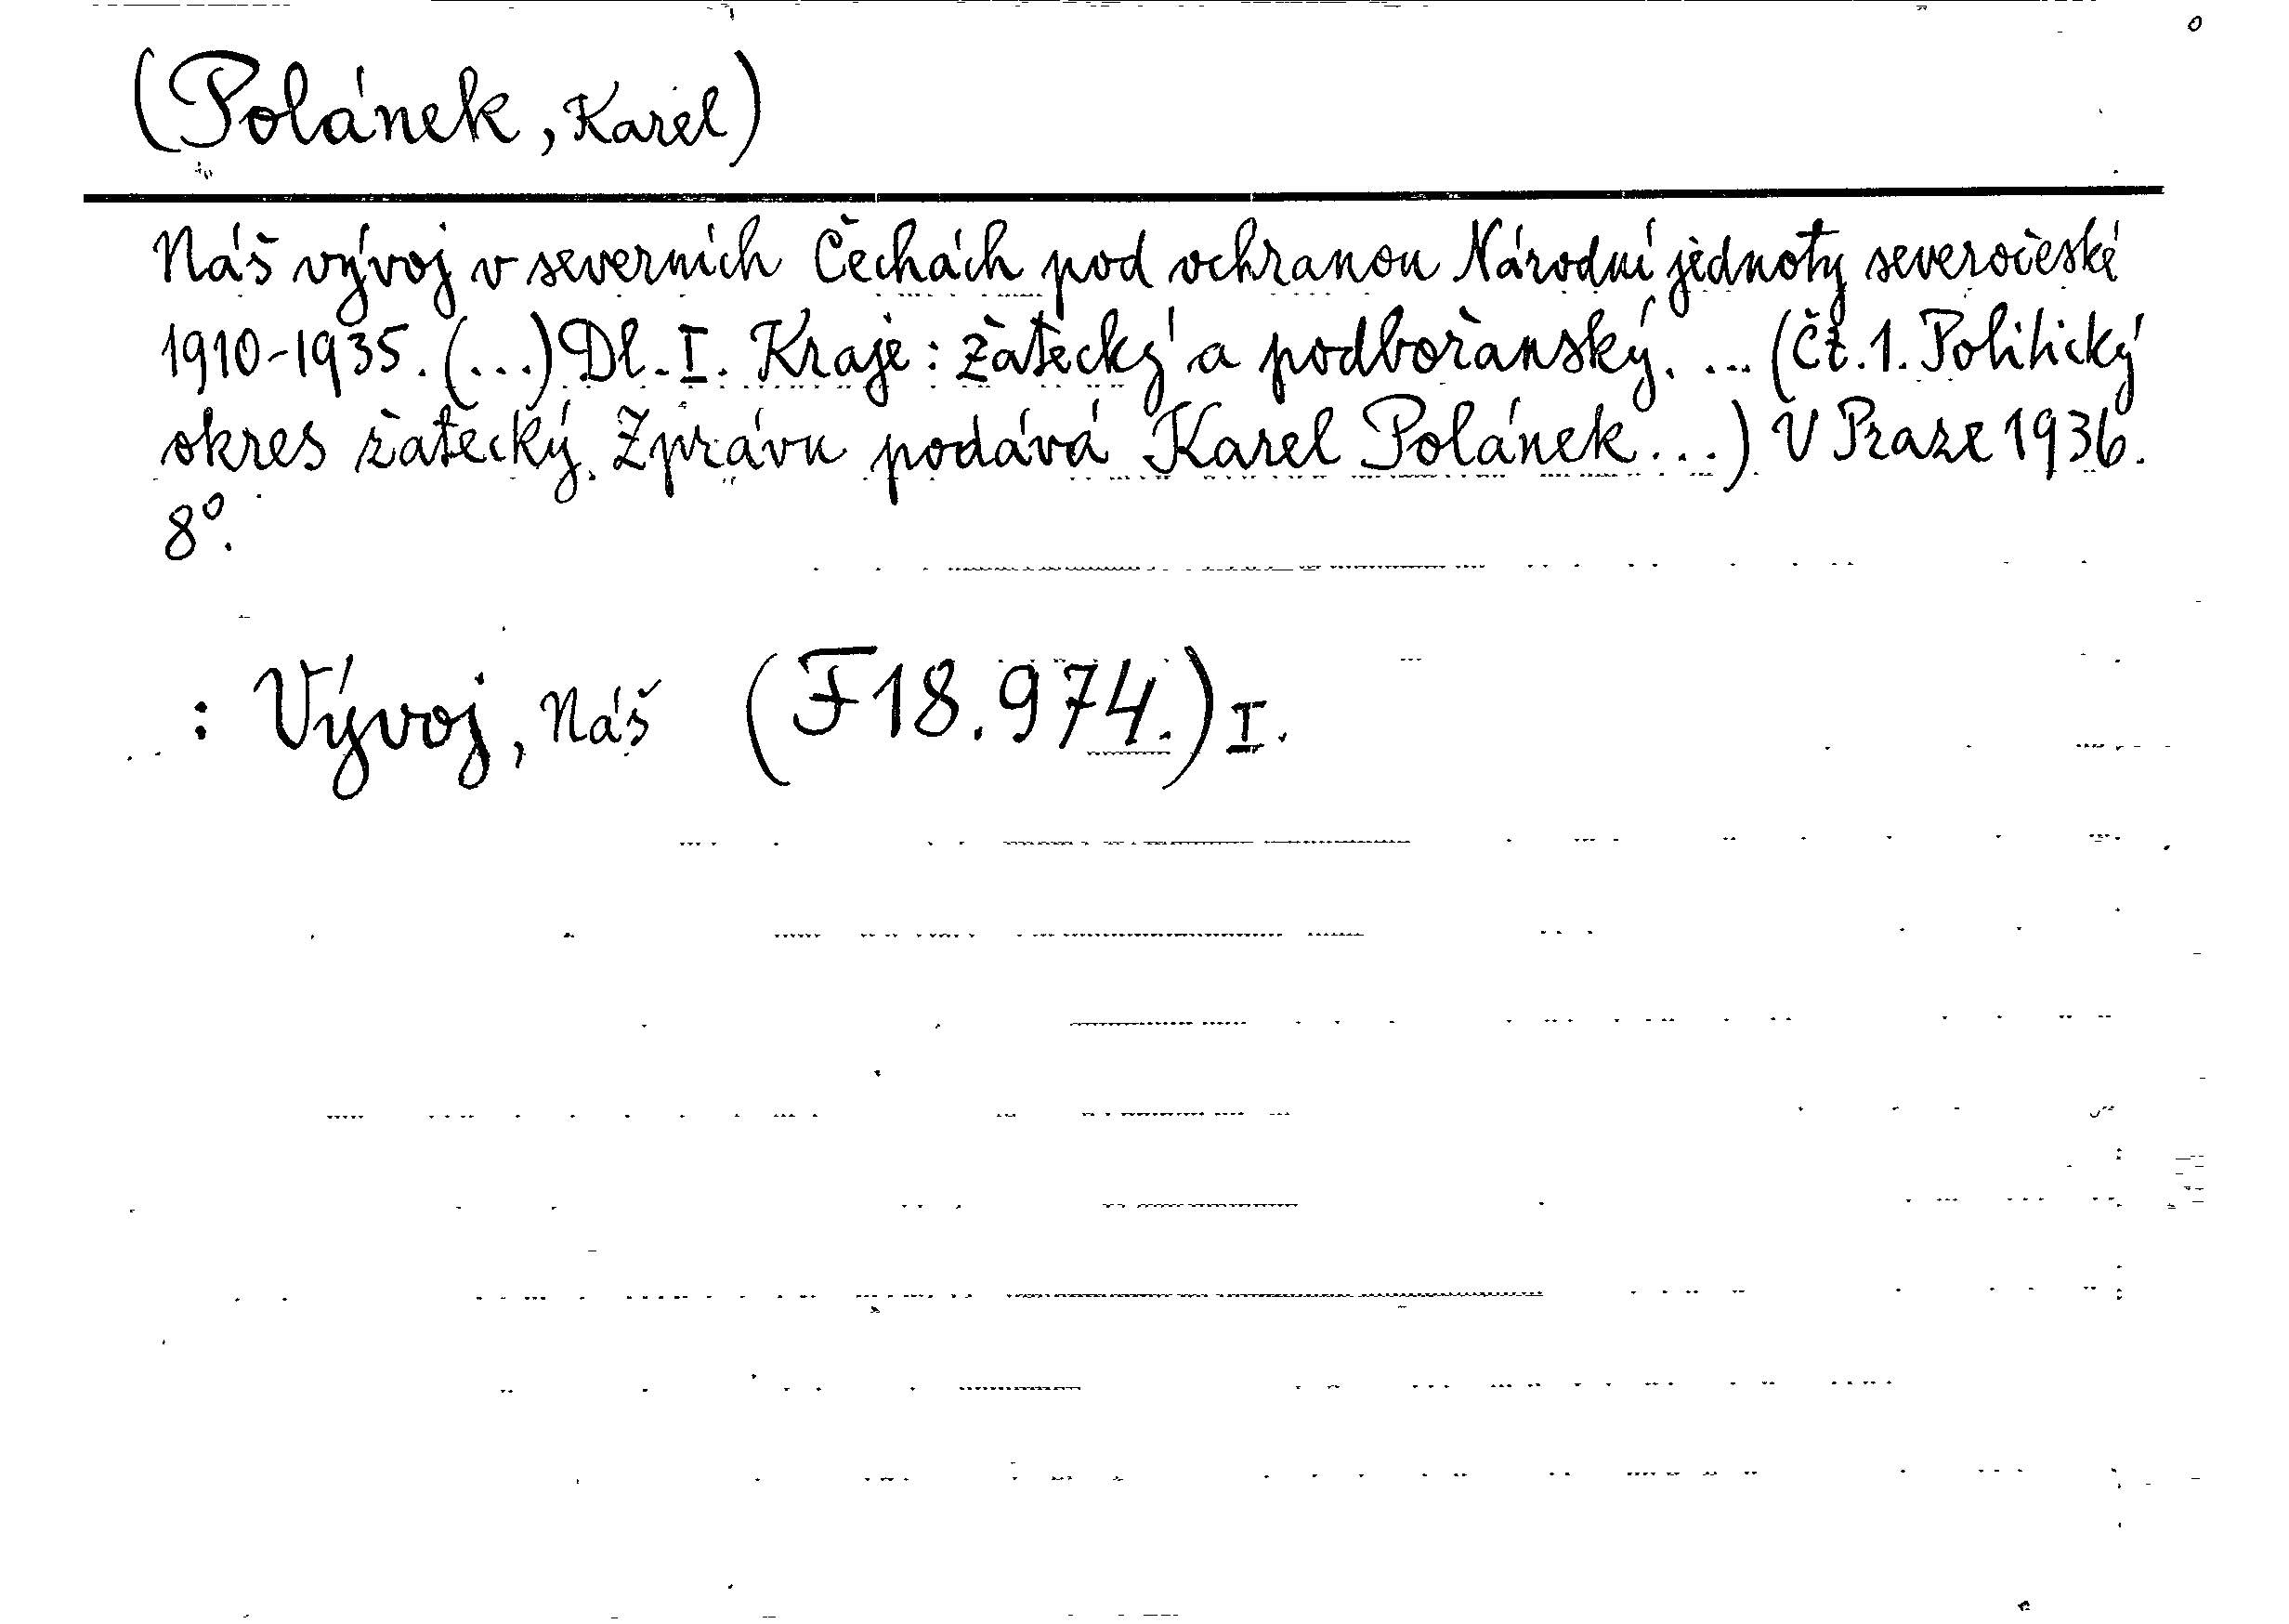 (Polánek, Karel)
Náš vývoj v severních Čechách pod ochranou Národní jednoty severočeské
1910-1935. (...) Dl. I. Kraje: žatecký a podbořanský. ... (Čt. 1. Politický
okres žatecký. Zprávu podává Karel Polánek...) V Praze 1936.
8°.
: Vývoj, Náš (F 18.974.) I.